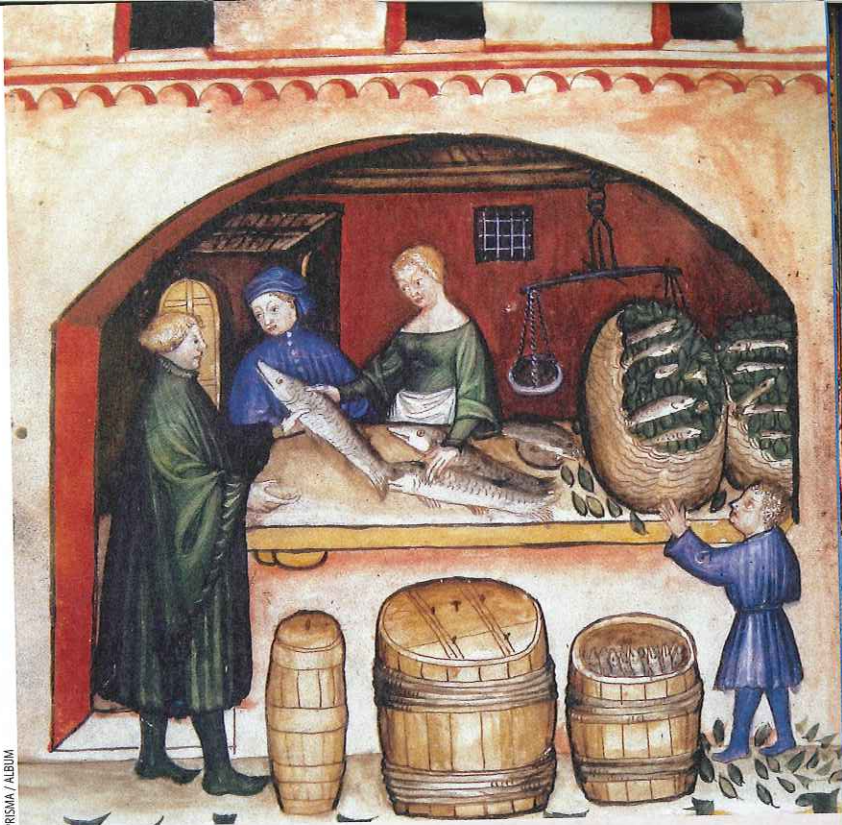 RISMA / ALBUM